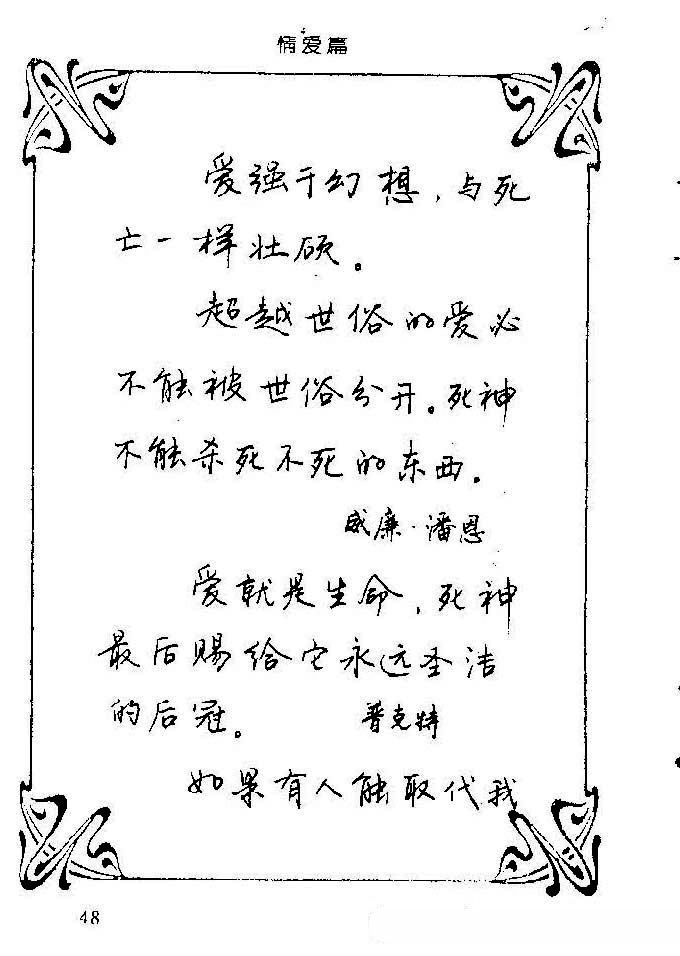 情爱篇
爱强于幻想，与死
亡一样壮硕。
超越世俗的爱必
不能被世俗分开。死神
不能杀死不死的东西。
威廉·潘恩
爱就是生命，死神
最后赐给它永远圣洁
的后冠。 普克特
如果有人能取代我
48